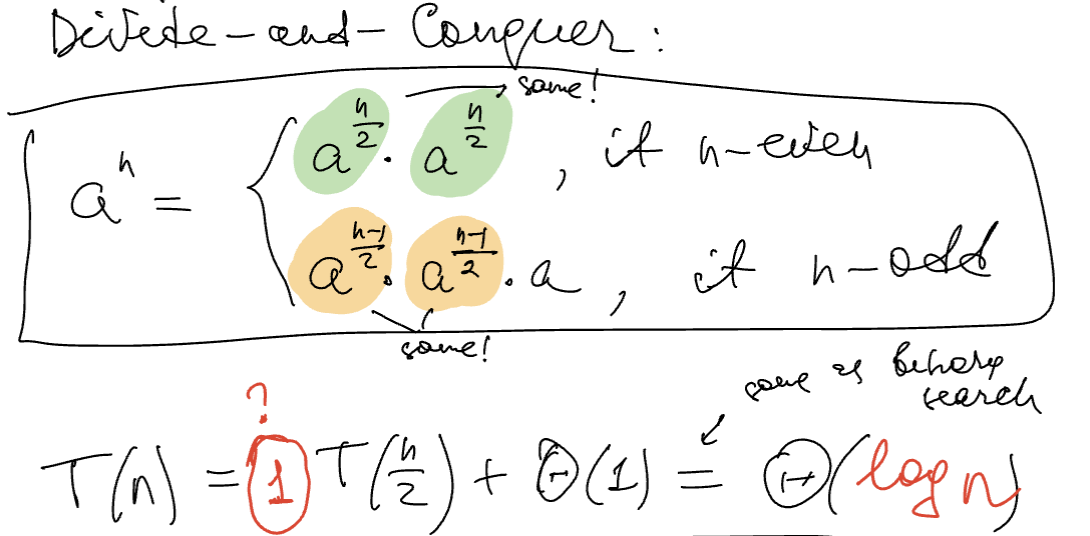 Divide-and-Conquer:
same!
aⁿ = { a^(n/2) · a^(n/2), if n-even
a^((n-1)/2) · a^((n-1)/2) · a, if n-odd
same!
same as binary search
?
T(n) = 1 T(n/2) + Θ(1) = Θ(log n)